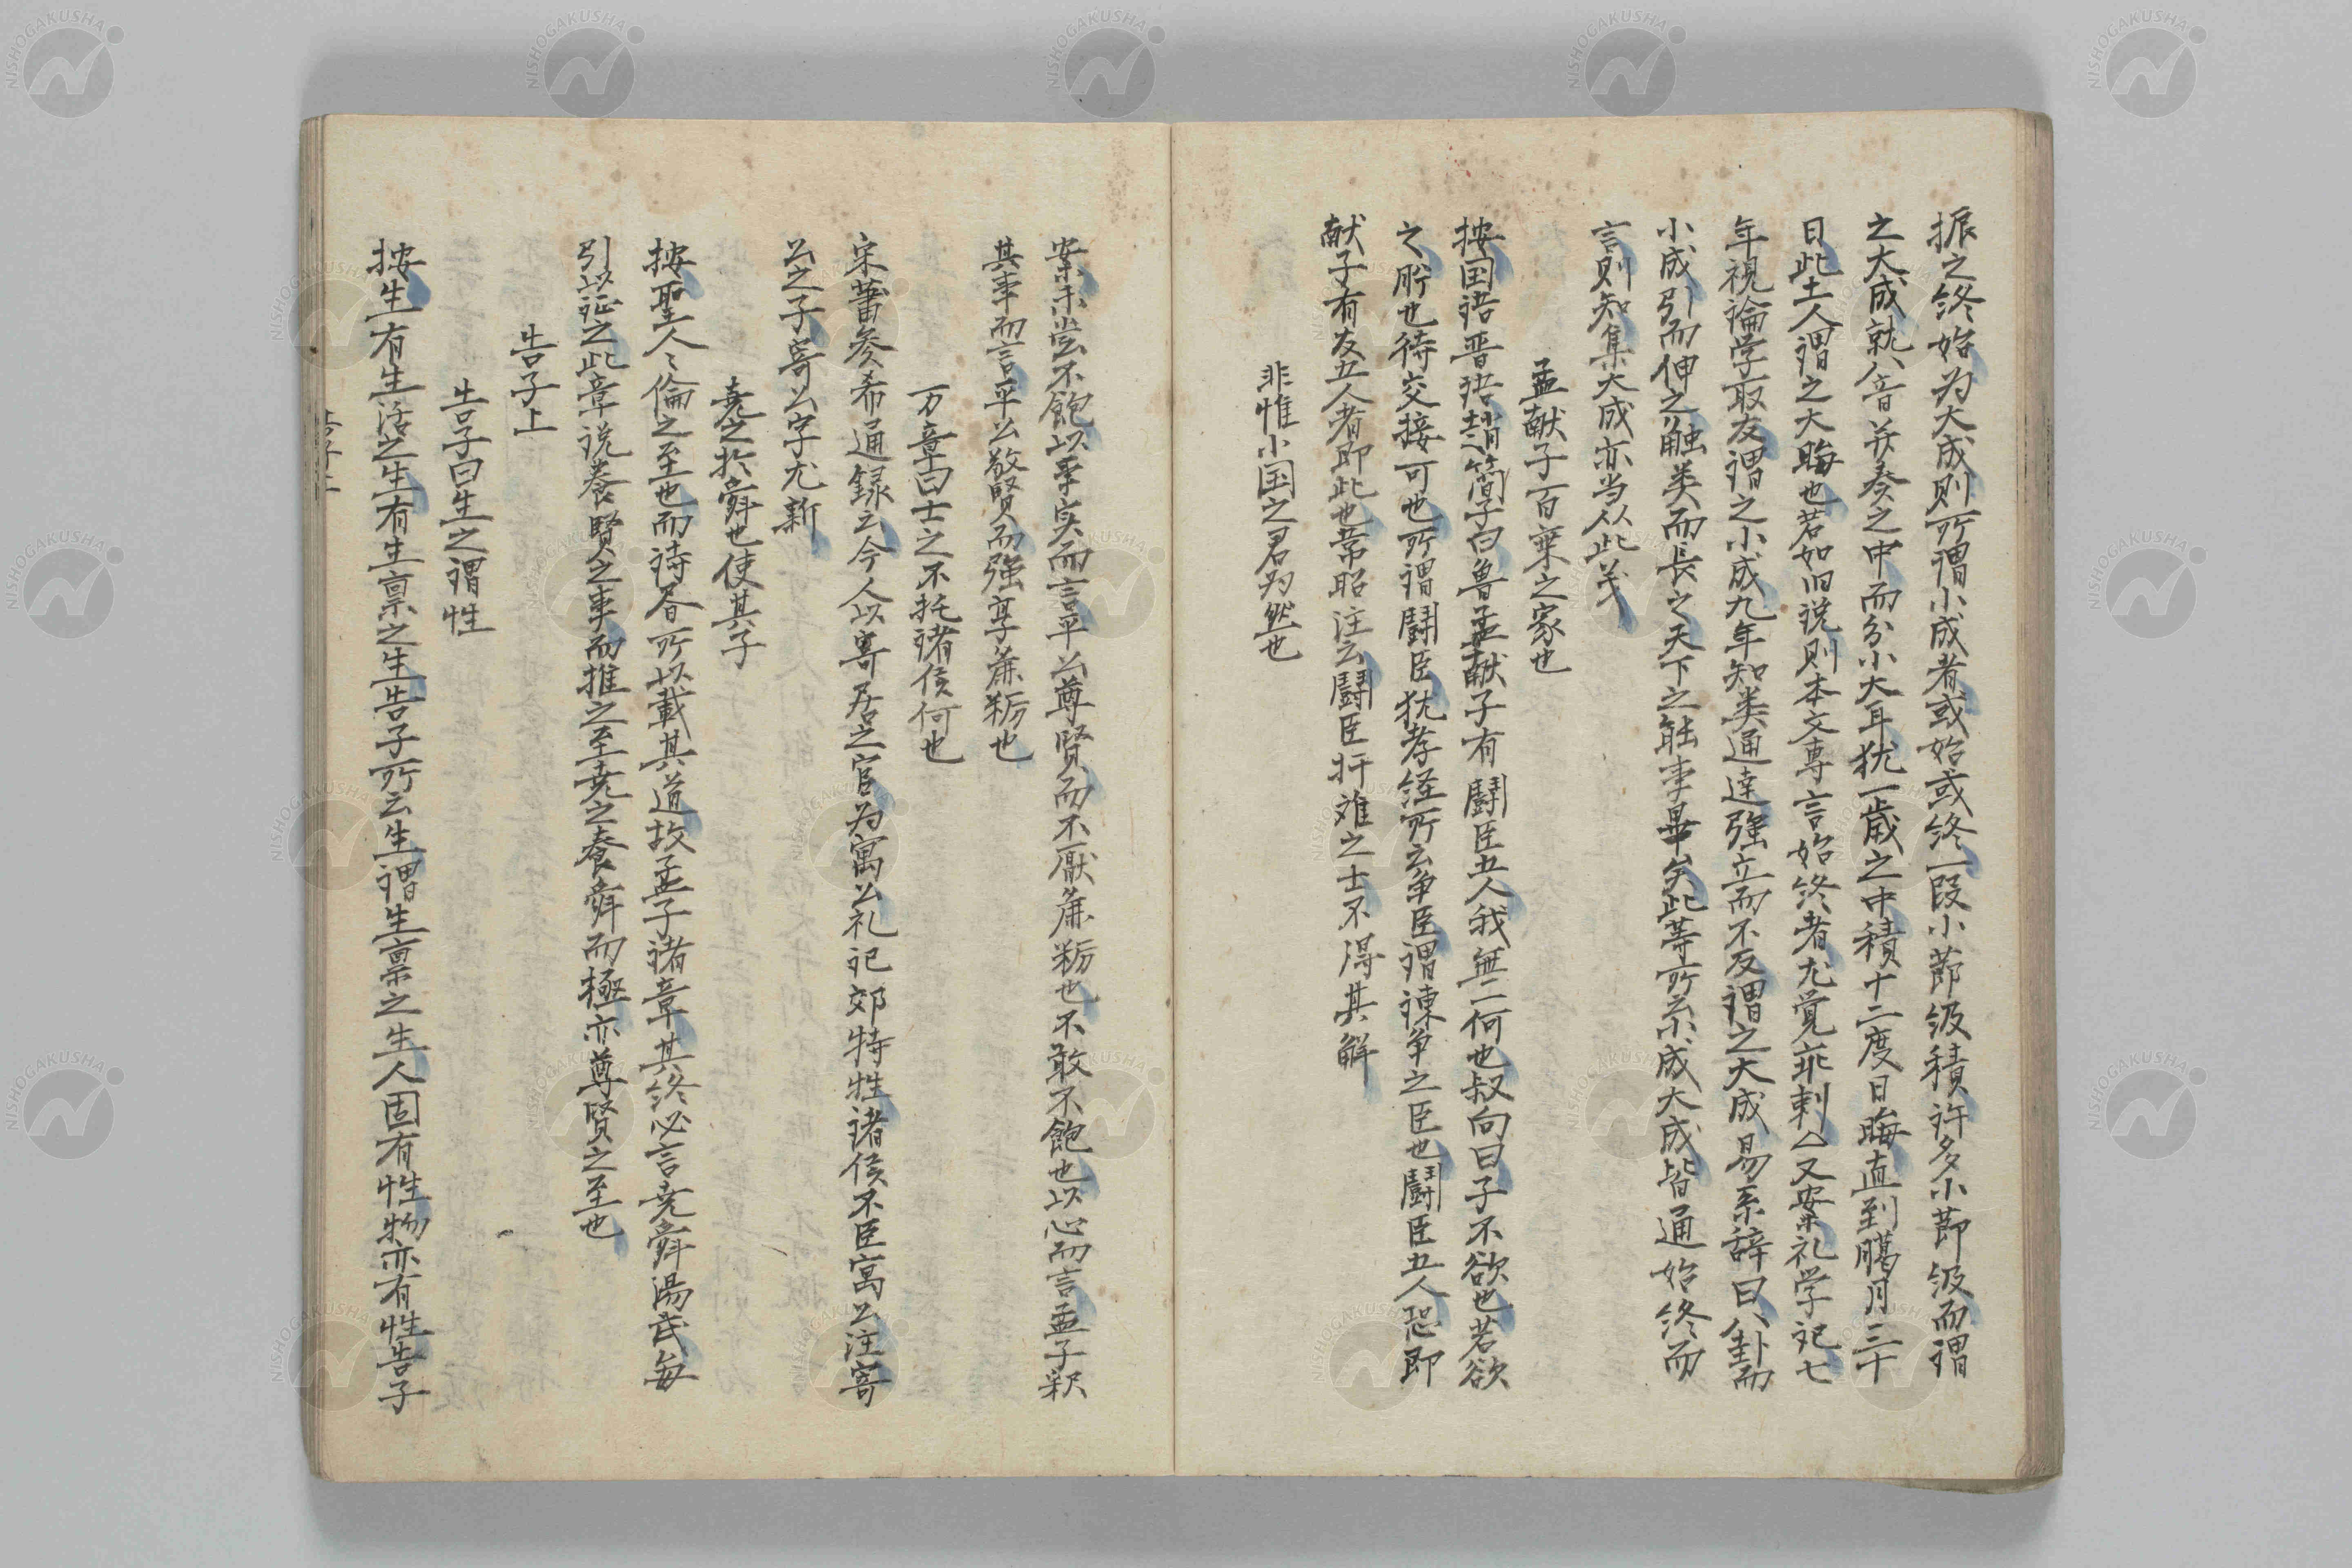 振之終始为大成則所謂小成者或始或終一段小莭級積許多小莭級而謂
之大成就八音并奏之中而分小大耳犹一歳之中積十二度日晦直到臈月三十
日此土人謂之大晦也若如旧说則本文専言始終者尤覚乖剌△又案礼学記七
年視論学取友謂之小成九年知类通達強立而不反謂之大成易系辞曰八卦而
小成引而伸之触类而長之天下之能事畢矣此等所云小成大成皆通始終而
言則知集大成亦当从此义
孟献子百乗之家也
按国语晋语趙簡子曰魯孟献子有鬬臣五人我無一何也叔向曰子不欲也若欲
之肸也待交接可也所謂鬬臣犹孝経所云争臣謂諌争之臣也鬬臣五人恐即
献子有友五人者即此也常昭注云鬬臣扞难之士不得其解
非惟小国之君为然也
案未尝不飽以事实而言平公尊賢而不厭麁粝也不敢不飽也以心而言孟子釈
其事而言平公敬賢而強享麁粝也
万章曰士之不托诸侯何也
宋蕾参希通録云今人以寄居之官为寓公礼记郊特牲诸侯不臣寓公注寄
公之子寄公字尤新
尭之於舜也使其子
按聖人人倫之至也而诗春所以載其道故孟子诸章其終必言尭舜湯武毎
引以证之此章说养賢之事而推之至尭之養舜而極亦尊賢之至也
告子上
告子曰生之谓性
按生有生活之生有生禀之生告子所云生谓生禀之生人固有性物亦有性告子
NISHOGAKUSHA